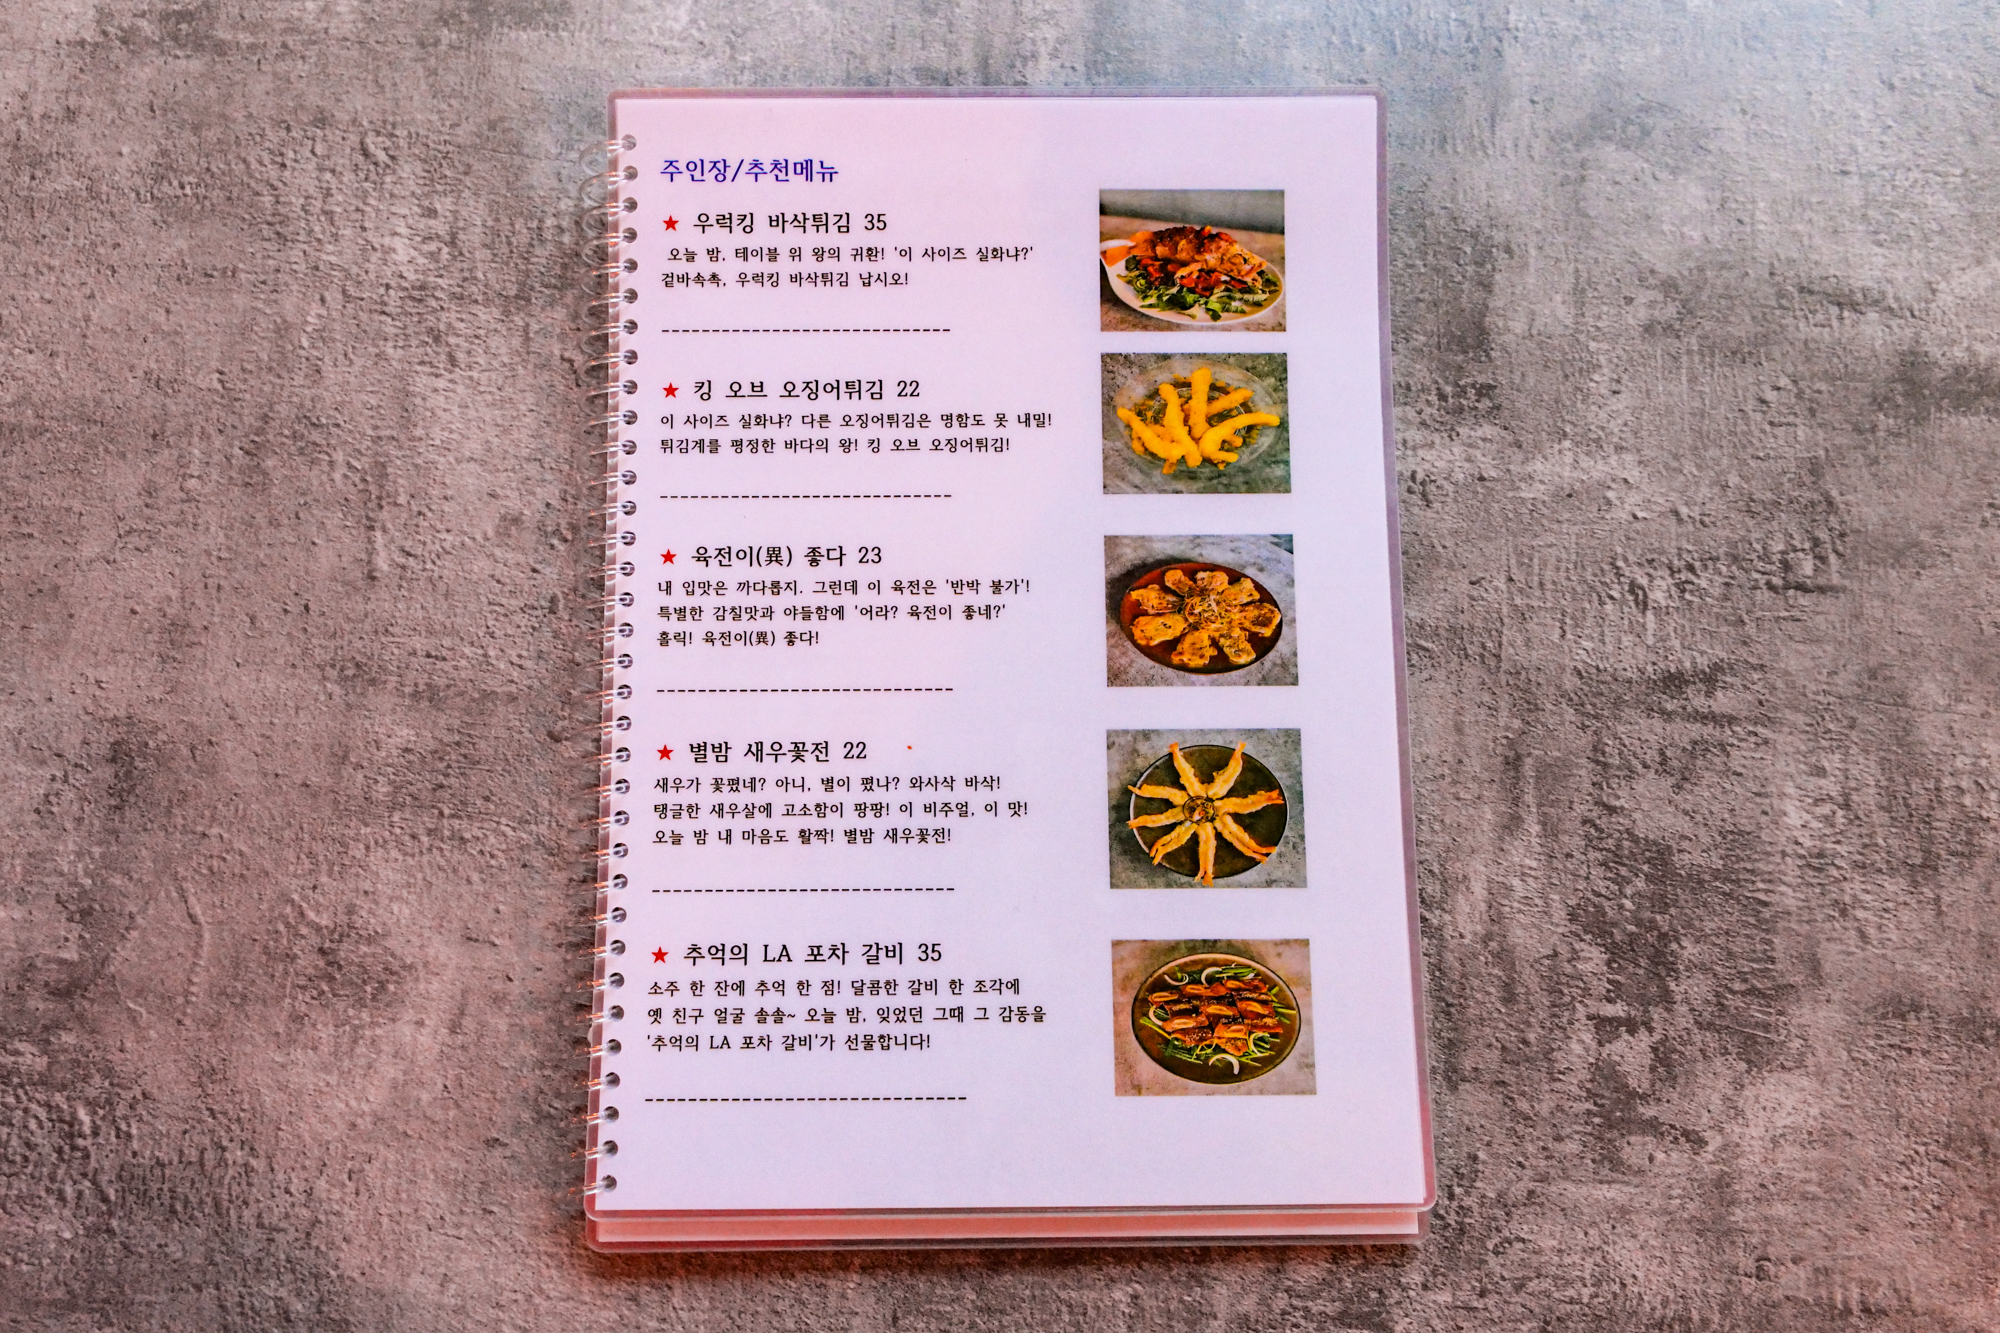 주인장/추천메뉴
★ 우럭킹 바삭튀김 35
오늘 밤, 테이블 위 왕의 귀환! '이 사이즈 실화냐?'
겉바속촉, 우럭킹 바삭튀김 납시오!
★ 킹 오브 오징어튀김 22
이 사이즈 실화냐? 다른 오징어튀김은 명함도 못 내밀!
튀김계를 평정한 바다의 왕! 킹 오브 오징어튀김!
★ 육전이(異) 좋다 23
내 입맛은 까다롭지. 그런데 이 육전은 '반박 불가'!
특별한 감칠맛과 야들함에 '어라? 육전이 좋네?'
홀릭! 육전이(異) 좋다!
★ 별밤 새우꽃전 22
새우가 꽃폈네? 아니, 별이 폈나? 와사삭 바삭!
탱글한 새우살에 고소함이 팡팡! 이 비주얼, 이 맛!
오늘 밤 내 마음도 활짝! 별밤 새우꽃전!
★ 추억의 LA 포차 갈비 35
소주 한 잔에 추억 한 점! 달콤한 갈비 한 조각에
옛 친구 얼굴 솔솔~ 오늘 밤, 잊었던 그때 그 감동을
'추억의 LA 포차 갈비'가 선물합니다!